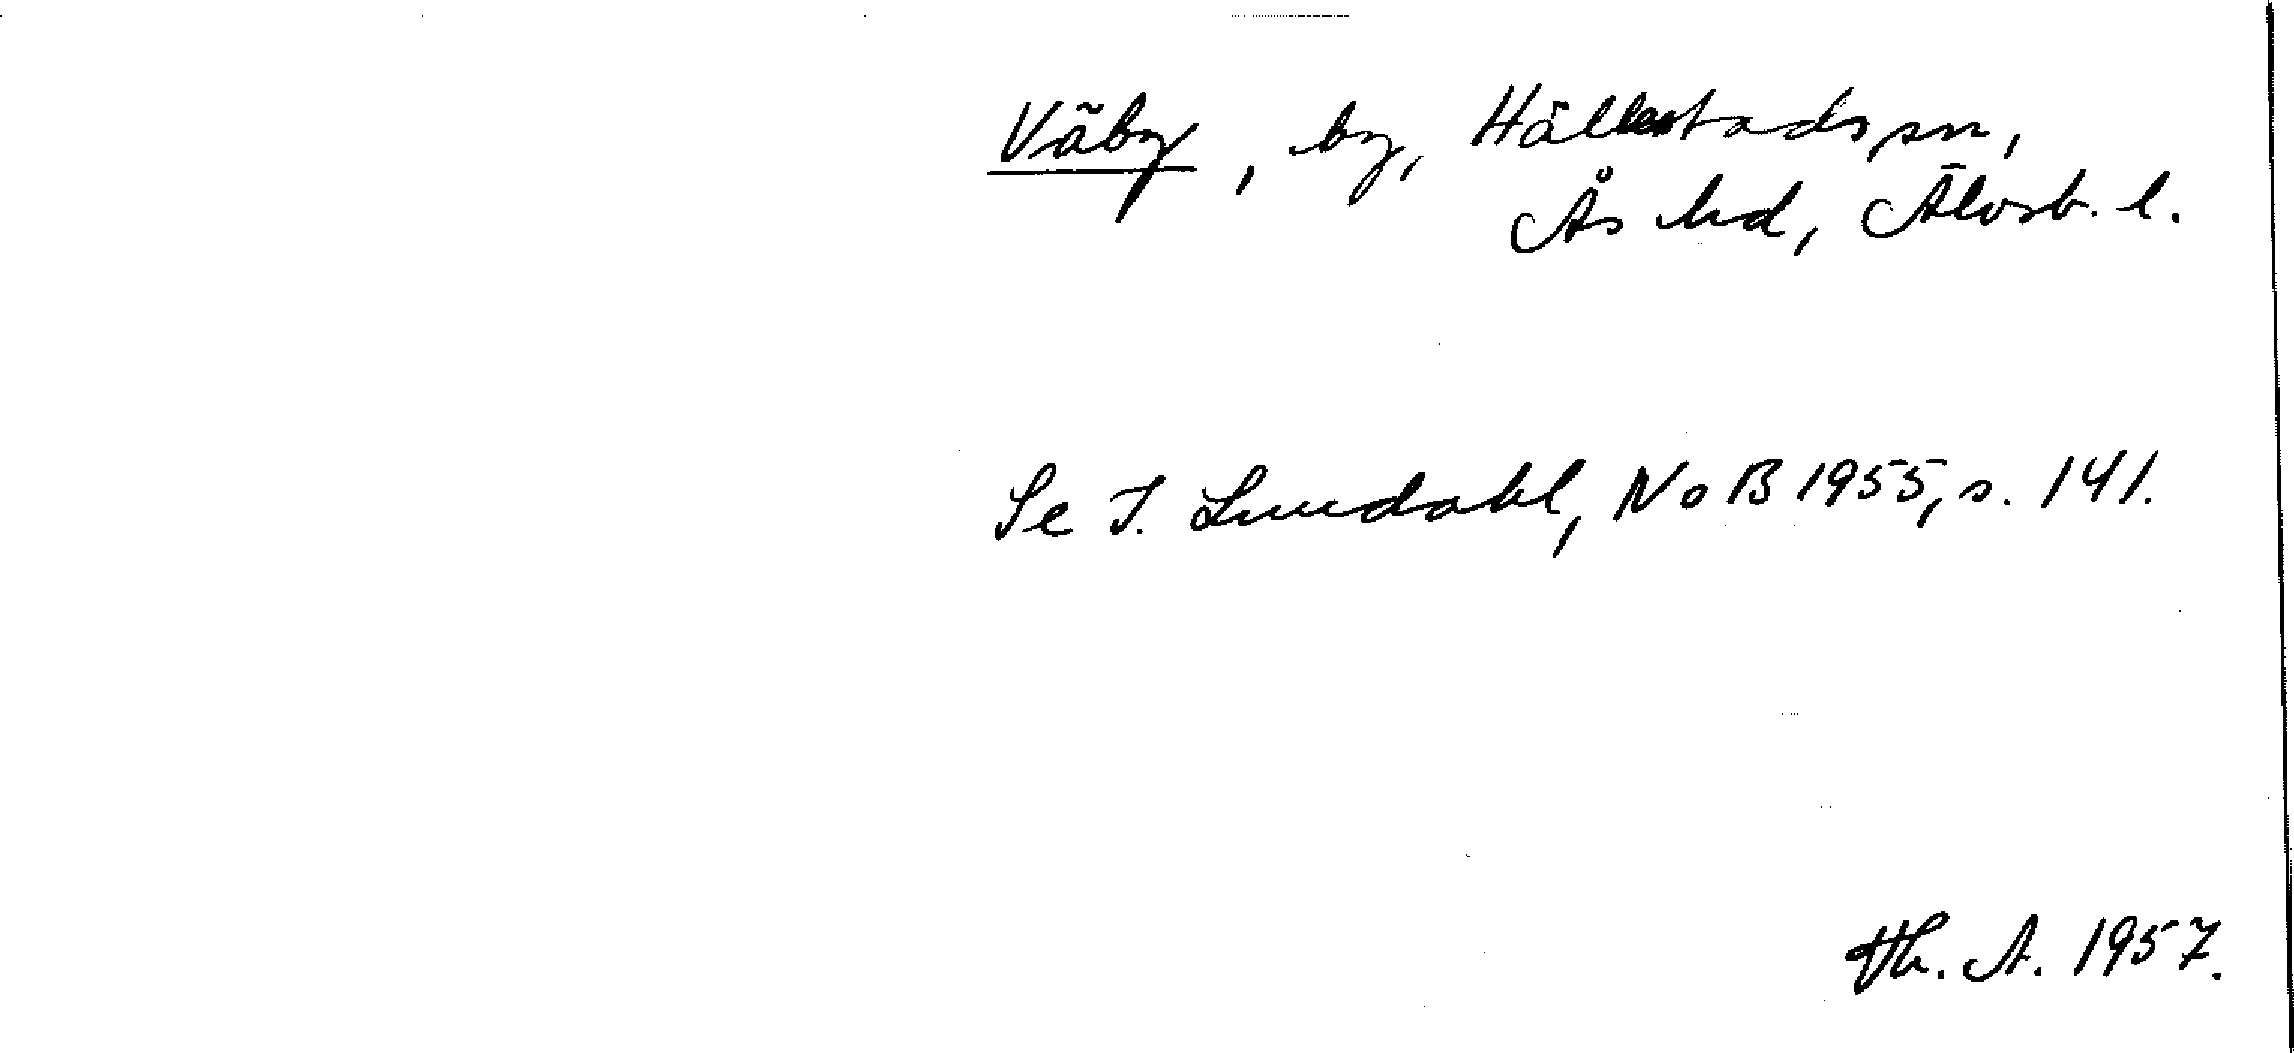 Väby, by, Hällestads sn,
Ås hd, Älvsb. l.
Se I. Lundahl, NoB 1955, s. 141.
Th. A. 1957.